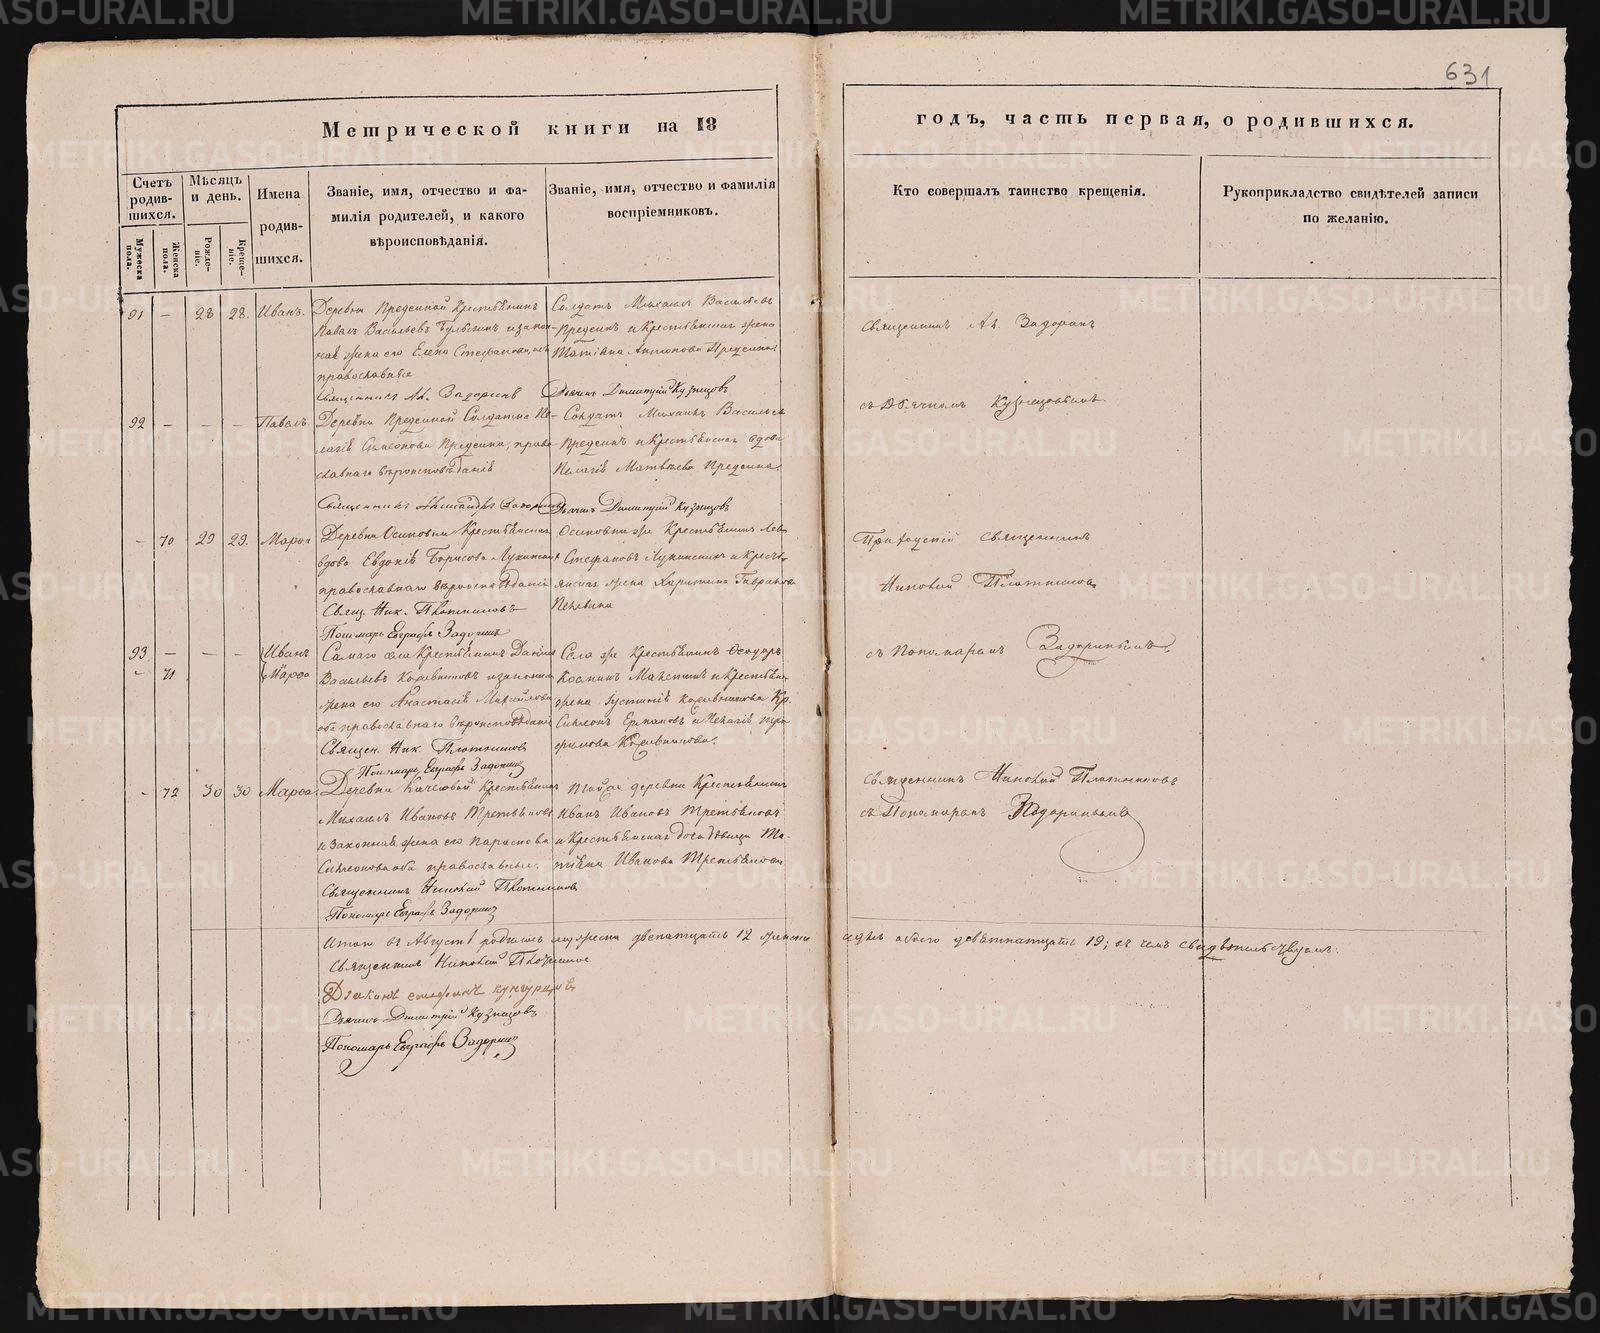 631
Метрической книги на 18
годъ, часть первая, о родившихся.
Счетъ родив-шихся.
Мѣсяцъ и день.
Имена родив-шихся.
Званіе, имя, отчество и фа-
милія родителей, и какого
вѣроисповѣданія.
Званіе, имя, отчество и фамилія
воспріемниковъ.
Кто совершалъ таинство крещенія.
Рукоприкладство свидѣтелей записи
по желанію.
Мужеска пола.
Женска пола.
Рожде-ніе.
Креще-ніе.
91 - 28 28. Иванъ.
Деревни Крестьянинъ
Павелъ Васильевъ и закон-
ная жена его Елена Стефановна, оба
православные
Священникъ Ал. Задоринъ
Солдатъ Михаилъ Васильевъ
и Крестьянская жена
Татіана Антонова
Дьячекъ Димитрій Кузнецовъ
Священникъ Ал. Задоринъ
съ Дьячкомъ Кузнецовымъ
92 - - - Павелъ
Деревни Солдатка Пе-
лагія Симеонова, право-
славнаго вѣроисповѣданія
Священникъ Александръ Задоринъ
Солдатъ Михаилъ Васильевъ
и Крестьянская вдова
Пелагія Матвѣева
Дьячекъ Димитрій Кузнецовъ
- 70 29 29. Марѳа
Деревни Осиповки Крестьянская
вдова Евдокія Борисова
православнаго вѣроисповѣданія
Свящ. Ник. Плотниковъ
Пономарь Евграфъ Задоринъ
Осиповки же Крестьянинъ Левъ
Стефановъ и Кресть-
янская жена Харитина Гаврилова
Приходскій Священникъ
Николай Плотниковъ
съ Пономаремъ Задоринымъ.
93 - - - Иванъ
- 71 Марѳа
Самаго села Крестьянинъ Даніилъ
Васильевъ и законная
жена его Анастасія Михайлова
оба православнаго вѣроисповѣданія
Священ. Ник. Плотниковъ
Пономарь Евграфъ Задоринъ
Села же Крестьянинъ Ѳеодоръ
и Крестьян.
жена Іустинія Кр.
Симеонъ Ермаковъ и Пелагія
- 72 30 30 Марѳа
Деревни Крестьянинъ
Михаилъ Ивановъ Третьяковъ
и законная жена его Параскева
Симеонова оба православные.
Священникъ Николай Плотниковъ
Пономарь Евграфъ Задоринъ
Тойже деревни Крестьянинъ
Иванъ Ивановъ Третьяковъ
и Крестьянская дочь дѣвица Та-
тіана Иванова Третьякова
Священникъ Николай Плотниковъ
съ Пономаремъ Задоринымъ
Итого въ Августѣ родилось мужеска двенатцать 12 женска седмь обоего девятнатцать 19; въ чемъ свидѣтельствуемъ:
Священникъ Николай Плотниковъ
Діаконъ Стефанъ
Дьячекъ Димитрій Кузнецовъ
Пономарь Евграфъ Задоринъ
METRIKI.GASO-URAL.RU